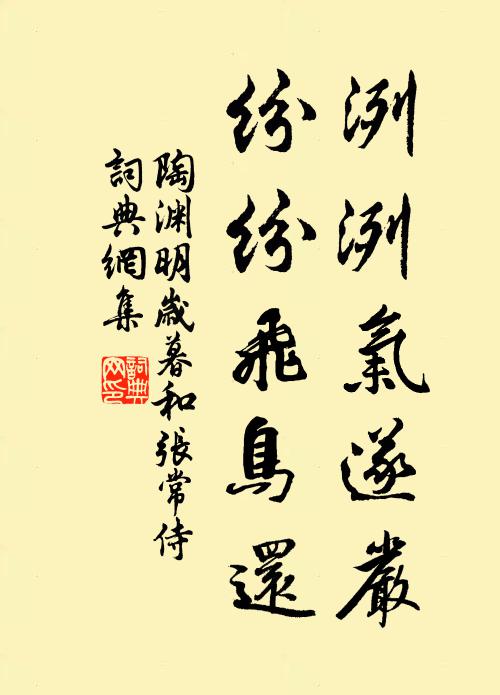 洌洌氣遂嚴
紛紛飛鳥還
陶渊明歲暮和張常侍
詞典網集
詞典
网印